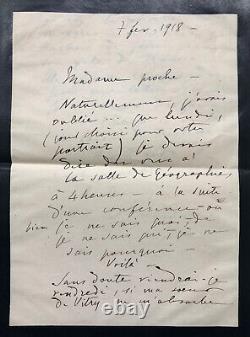 7 fev. 1918 -
Madame proche -
Naturellement, j'avais
oublié... que lundi,
(jour choisi pour votre
portrait) je devais
être
la salle de géographie,
à 4 heures - à la suite
d'une conférence - où
bien je ne sais quoi, de
je ne sais qui, je ne
sais pourquoi -
Voilà
Sans doute viendrai-je
vendredi, si ma soeur
de Vitry ne m'absorbe
© ebay